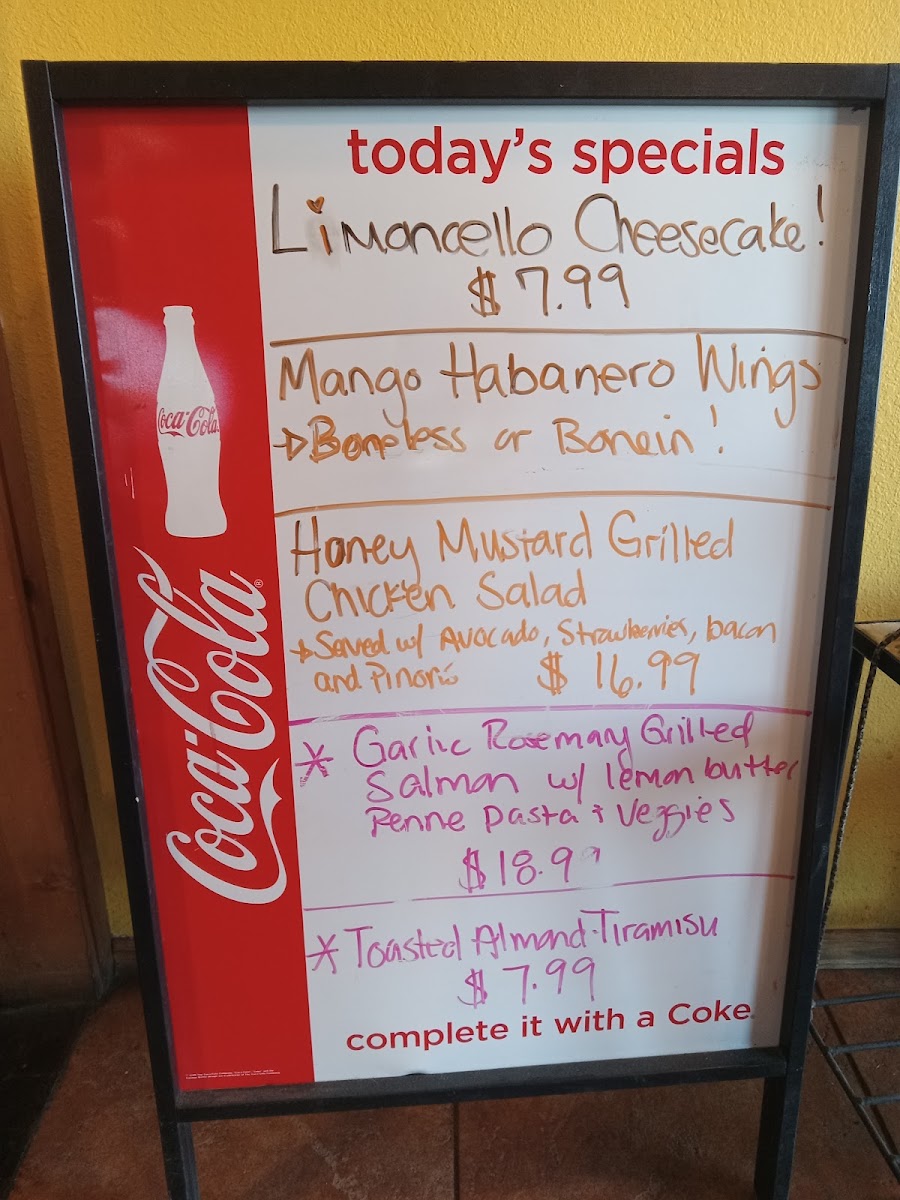 today's specials
Limoncello Cheesecake!
$7.99
Mango Habanero Wings
Boneless or Bonein!
Honey Mustard Grilled
Chicken Salad
Served w/ Avocado, Strawberries, bacon
and Pinons $16.99
* Garlic Rosemary Grilled
Salmon w/ lemon butter
Penne pasta & Veggies
$18.99
* Toasted Almond Tiramisu
$7.99
complete it with a Coke
Coca-Cola
Coca-Cola®